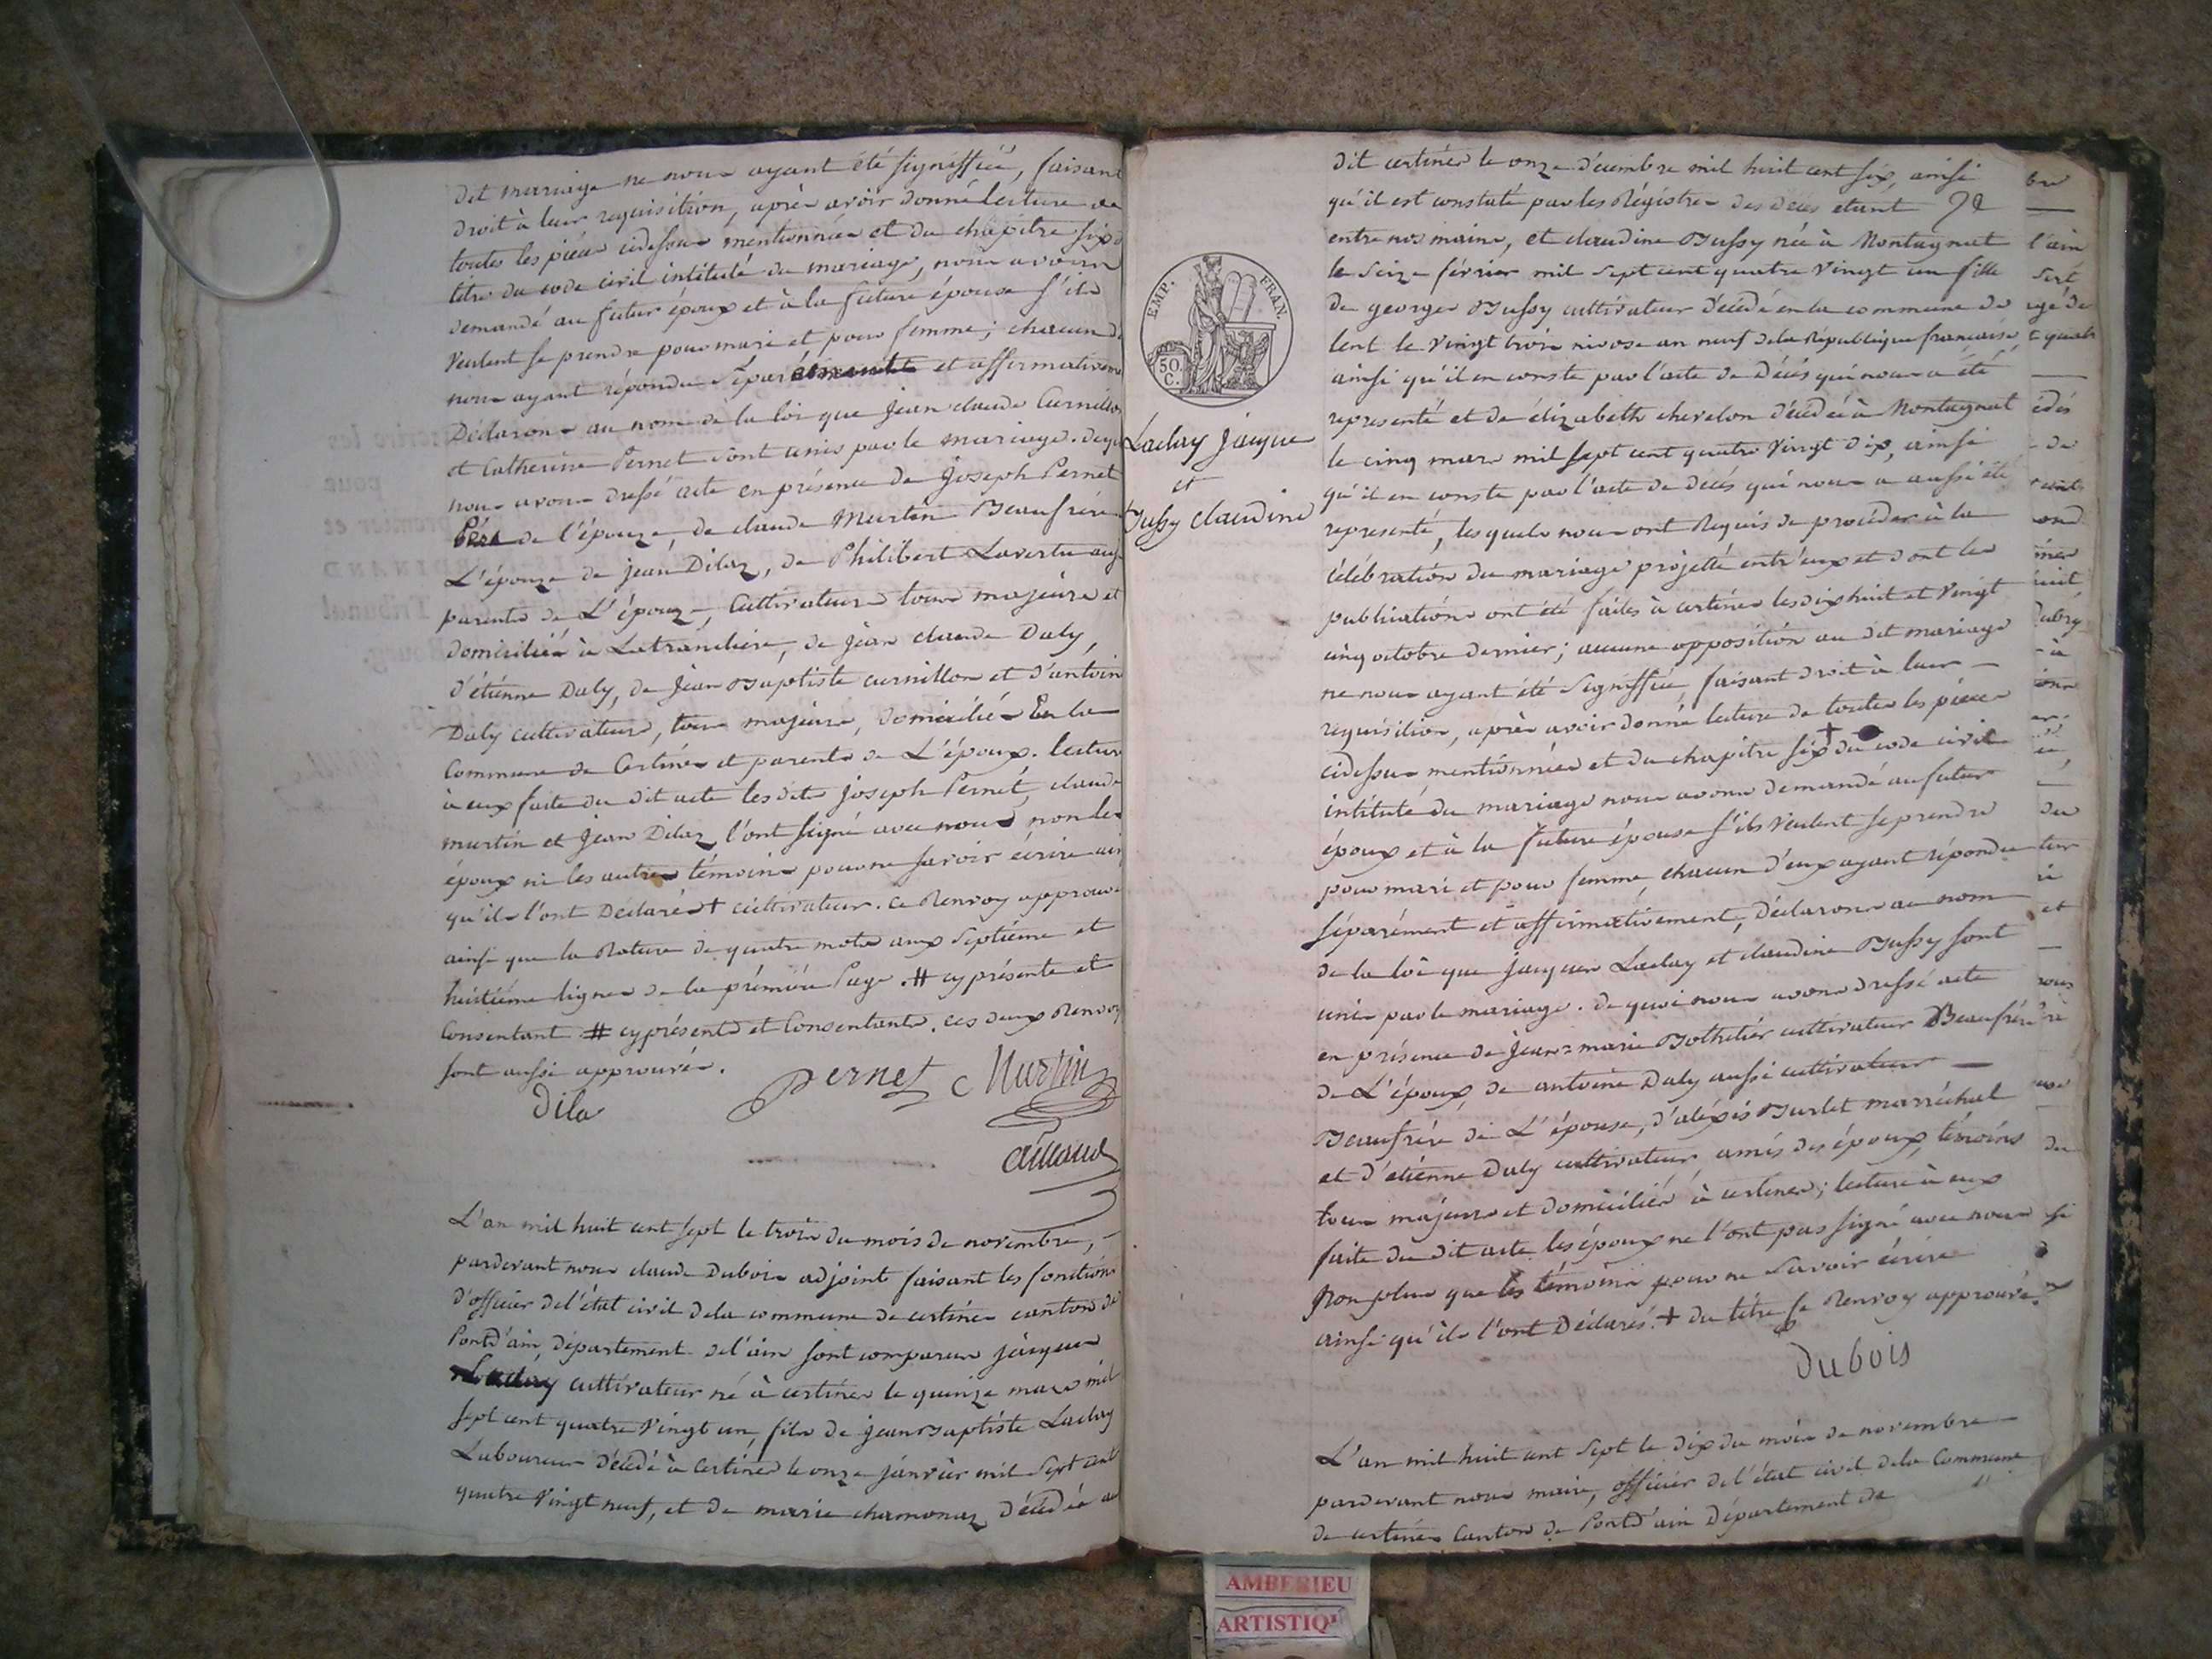 dit mariage ne nous ayant été signiffiée, faisant
droit à leur requisition, après avoir donné lecture de
toutes les pièces cidessus mentionnées et du chapitre six
titre du code civil intitulé du mariage, nous avons
demandé au futur époux et à la future épouse s'ils
veulent se prendre pour mari et pour femme; chacun d
nous ayant répondu séparément et affirmativeme
Déclarons au nom de la loi que jean claude Curnillon
et Catherine Pernet sont unis par le mariage. de qu
nous avons dressé acte en présence de Joseph Pernet
Père de l'épouze, de claude Martin Beaufrére
L'épouze de jean Dilaz, de Philibert Lavertu aus
parents de L'épouze, Cultivateurs tous majeurs et
domiciliés à Latranclière, de jean claude Daly,
d'étienne Daly, de jean Baptiste curnillon et d'antoin
Daly cultivateurs, tous majeurs, domiciliés En la
Commune de Certines et parents de L'époux. lectur
à eux faite du dit acte les dits joseph Pernet, claude
martin et jean Dilaz l'ont signé avec nous non les
époux ni les autres témoins pour ne savoir écrire ain
qu'ils l'ont Déclarés + cultivateur. ce Renvoy approuvé
ainsi que la Rature de quatre mots aux septiéme et
huitiéme lignes de la prémiére Page. # cy présente et
Consentant # cy présents et Consentants. ces deux Renvoy
sont aussi approuvés.
Pernet C Martin
Dila
L'an mil huit cent sept le trois du mois de novembre,
pardevant nous claude Dubois adjoint faisant les fonctions
d'officier de l'état civil de la commune de certines canton de
Pontd'ain, département de l'ain sont comparus jacques
Laclay cultivateur né à certines le quinze mars mil
sept cent quatre vingt un, fils de jean Baptiste Laclay
Laboureur décédé à Certines le onze janvier mil sept cent
quatre vingt neuf, et de marie chamonaz, décédée au
EMP. FRAN.
50. C.
Laclay jacque
et
Bussy claudine
dit certines le onze décembre mil huit cent six, ainsi
qu'il est constaté par les Régistres des décès étant
entre nos mains, et claudine Bussy née à Montagnat
le seize février mil sept cent quatre vingt un fille
de george Bussy cultivateur décédé en la commune de
lent le vingt trois nivose an neuf de la République francaise,
ainsi qu'il en conste par l'acte de Décès qui nous a été
representé et de élizabeth chevelon décédée à Montagnat
le cinq mars mil sept cent quatre vingt dix, ainsi
qu'il en conste par l'acte de décès qui nous a aussi été
representé, lesquels nous ont Requis de procéder à la
célébration du mariage projetté entr'eux et dont les
publications ont été faites à certines les dix huit et vingt
cinq octobre dernier; aucune opposition au dit mariage
ne nous ayant été signiffiée, faisant droit à leur
requisition, après avoir donné lecture de toutes les pièces
cidessus mentionnées et du chapitre six + du code civil
intitulé du mariage nous avons demandé au futur
époux et à la future épouse s'ils veulent se prendre
pour mari et pour femme, chacun d'eux ayant répondu
séparément et affirmativement, Déclarons au nom
de la loi que jacques Laclay et claudine Bussy sont
unis par le mariage. de quoi nous avons dressé acte
en présence de jean-marie Bothelier cultivateur Beaufrére
de L'époux, de antoine Daly aussi cultivateur
Beaufrére de L'épouse, d'aléxis Burlet marréchal
et d'étienne Daly cultivateur, amis des époux, témoins
tous majeurs et domiciliés à certines; lecture à eux
faite du dit acte les époux ne l'ont pas signé avec nous
Non plus que les témoins pour ne savoir écrire
ainsi qu'ils l'ont Déclarés. + du titre Renvoy approuvé.
Dubois
L'an mil huit cent sept le dix du mois de novembre
pardevant nous maire, officier de l'état civil de la Commune
de certines Canton de Pontd'ain Département de
AMBERIEU
ARTISTIQ